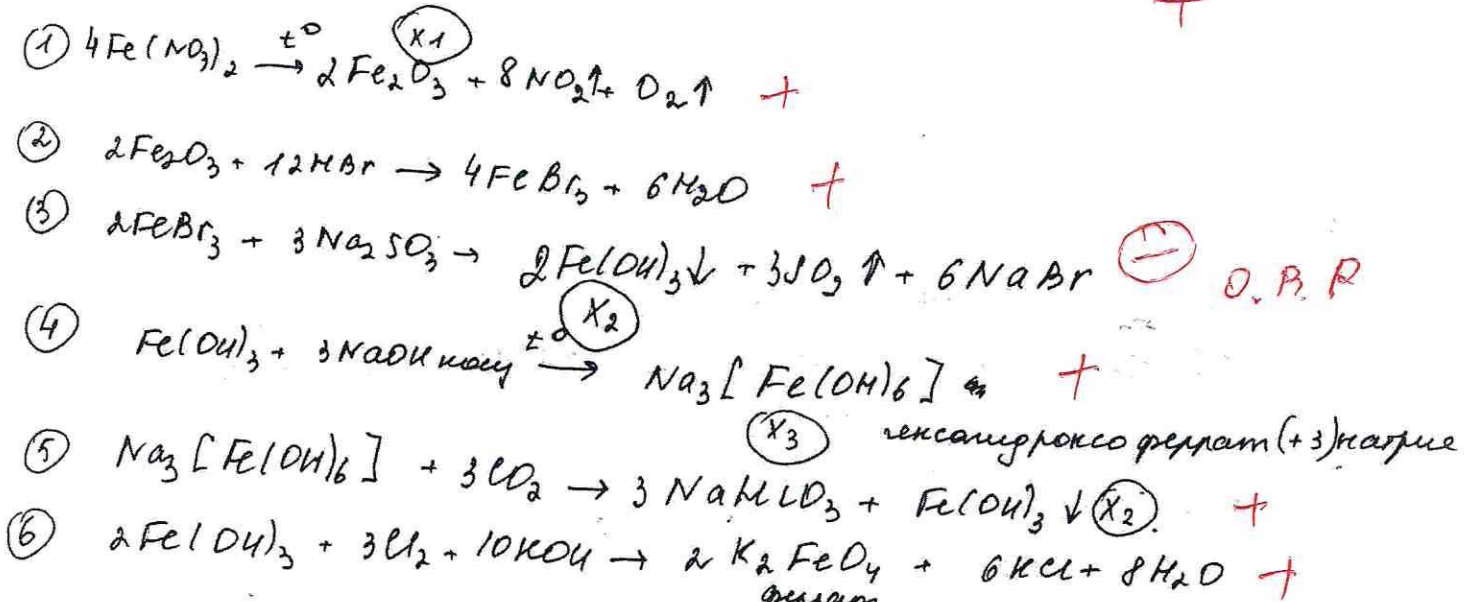 ① 4Fe(NO₃)₂ →t° 2Fe₂O₃ (X1) + 8NO₂↑ + O₂↑ +
② 2Fe₂O₃ + 12HBr → 4FeBr₃ + 6H₂O +
③ 2FeBr₃ + 3Na₂SO₃ → 2Fe(OH)₃↓ + 3SO₂↑ + 6NaBr − О.В.Р
X₂
④ Fe(OH)₃ + 3NaOH конц →t° Na₃[Fe(OH)₆] +
X₃ гексагидроксоферрат (+3) натрие
⑤ Na₃[Fe(OH)₆] + 3CO₂ → 3NaHCO₃ + Fe(OH)₃↓ X₂. +
⑥ 2Fe(OH)₃ + 3Cl₂ + 10KOH → 2K₂FeO₄ + 6KCl + 8H₂O +
феррат